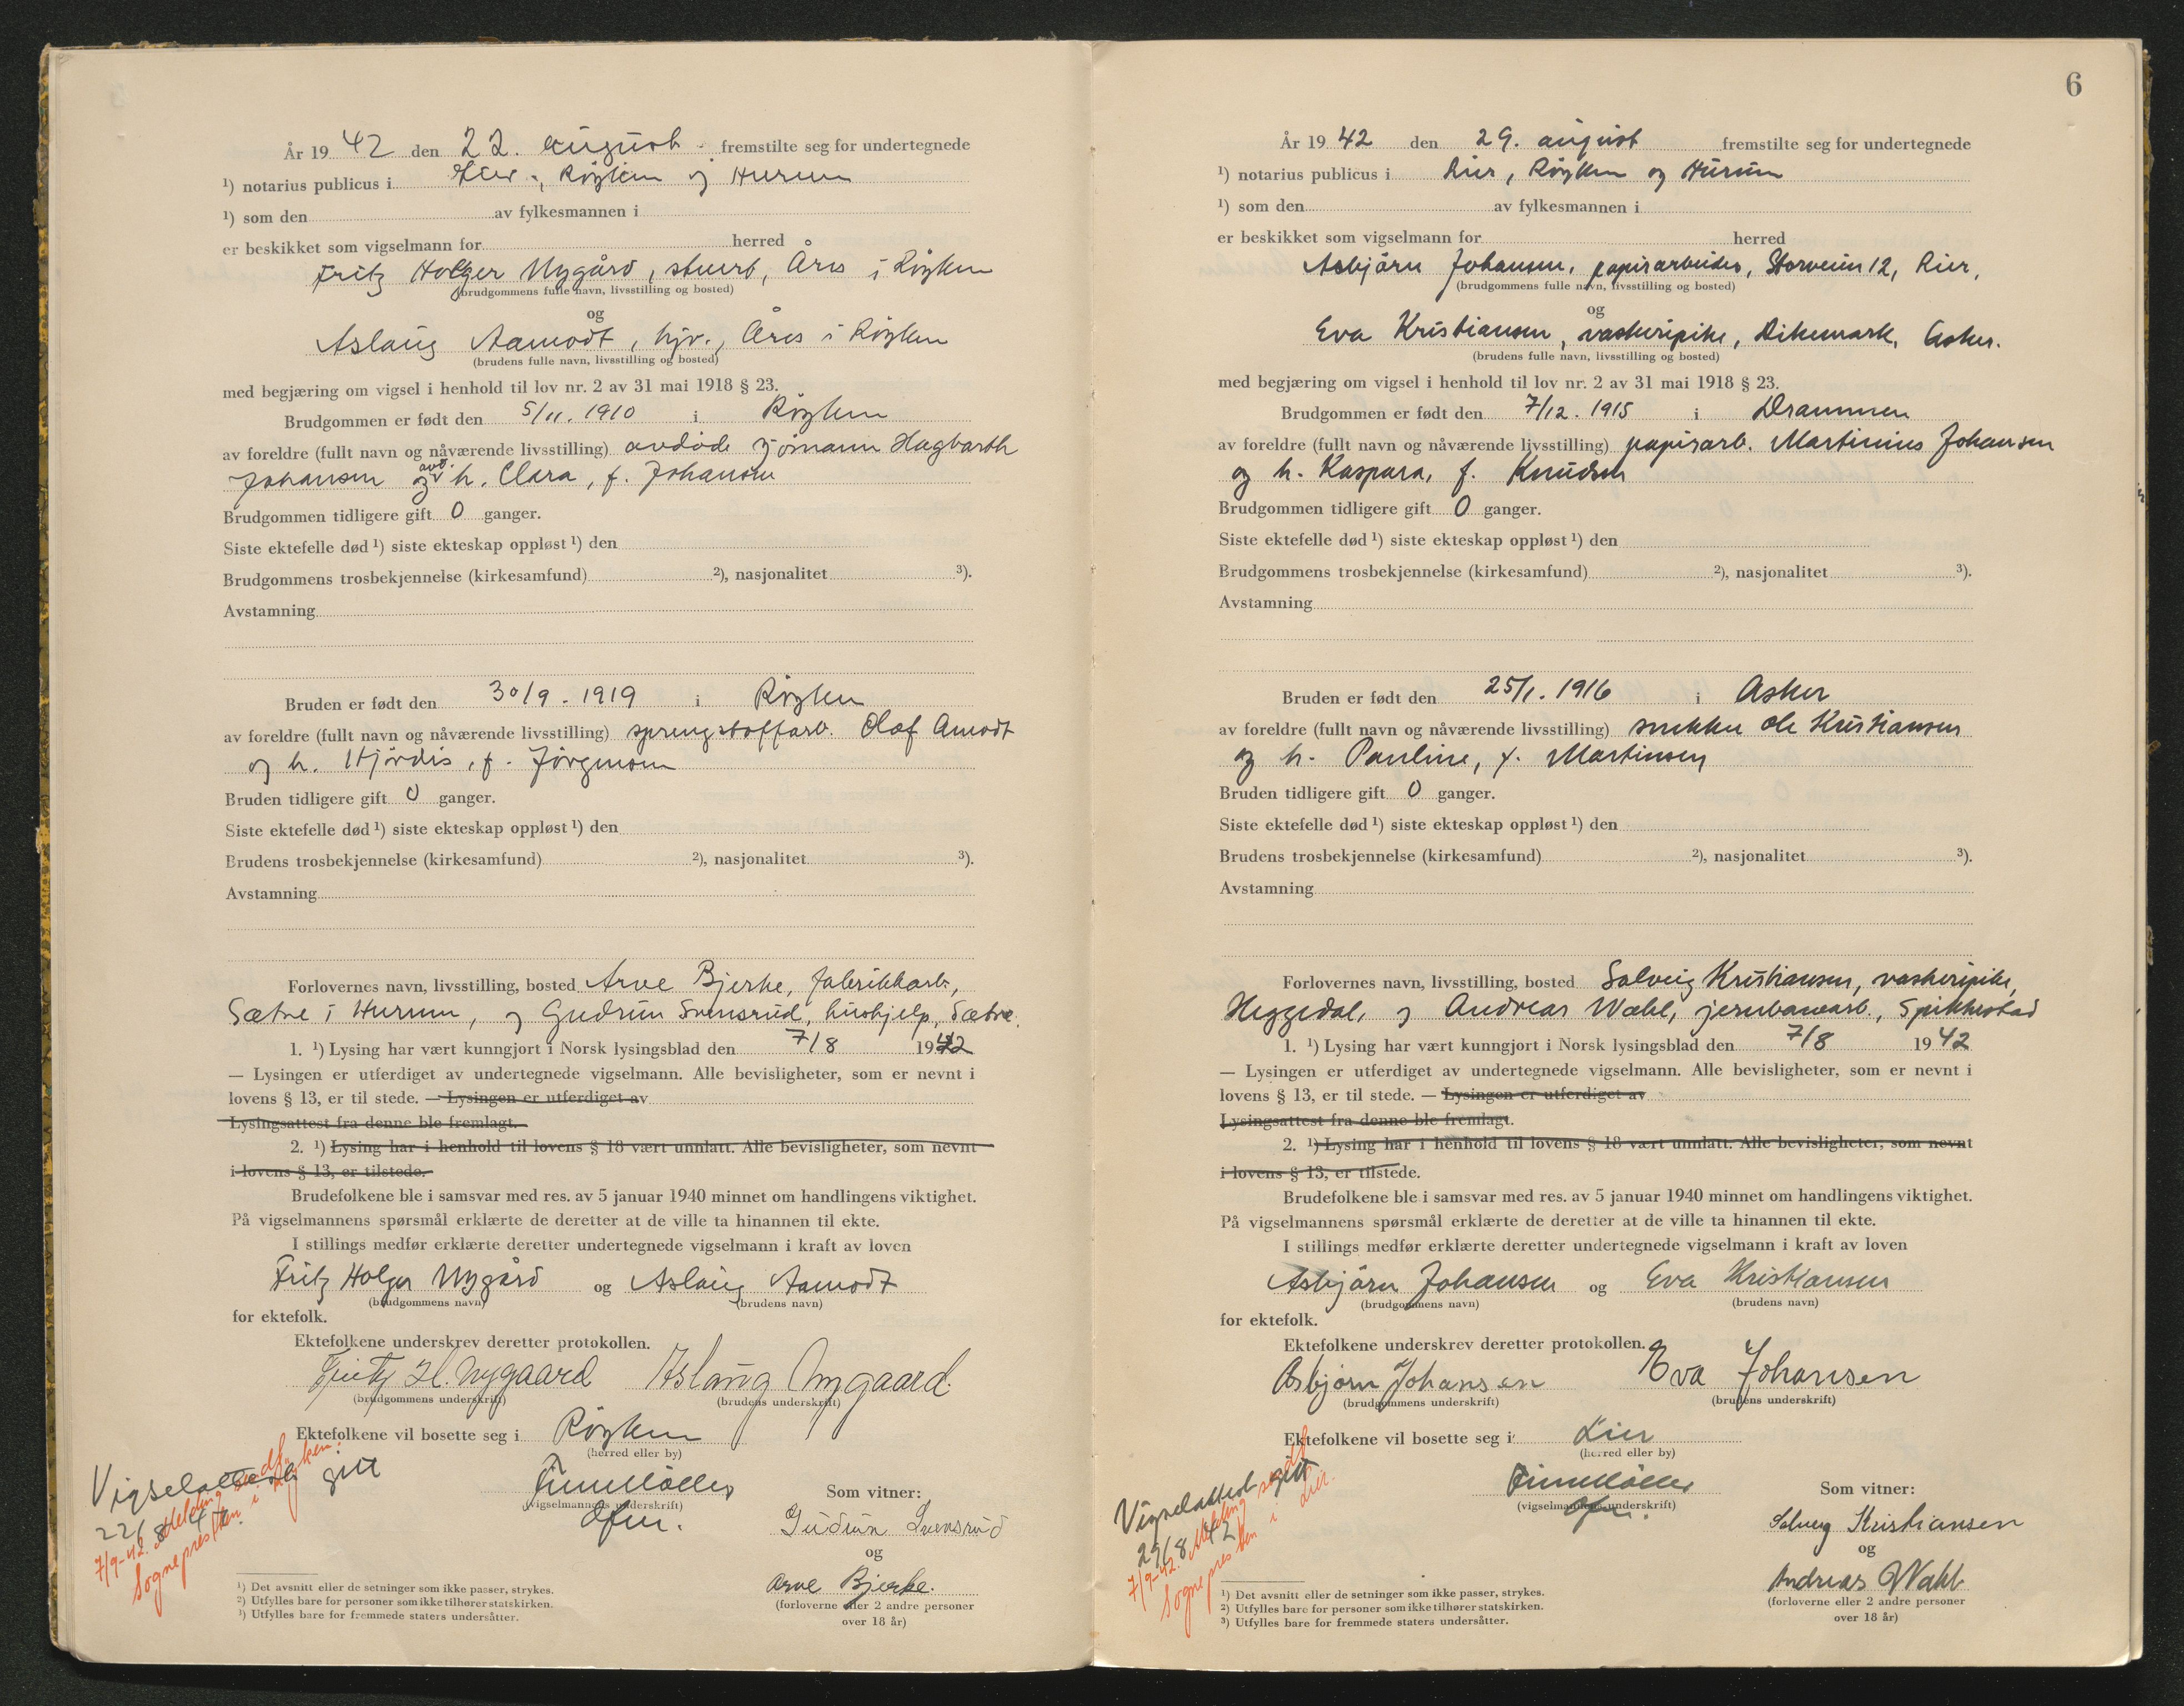 År 19 42 den 22. august fremstilte seg for undertegnede
¹) notarius publicus i Lier, Røyken og Hurum
¹) som den av fylkesmannen i
er beskikket som vigselmann for herred
Fritz Holger Nygård, stuert, Åros i Røyken
(brudgommens fulle navn, livsstilling og bosted)
og
Aslaug Aamodt, hjv., Åros i Røyken
(brudens fulle navn, livsstilling og bosted)
med begjæring om vigsel i henhold til lov nr. 2 av 31 mai 1918 § 23.
Brudgommen er født den 5/11. 1910 i Røyken
av foreldre (fullt navn og nåværende livsstilling) avdøde sjømann Hagbarth
Johansen og avd. h. Clara, f. Johansen
Brudgommen tidligere gift 0 ganger.
Siste ektefelle død ¹) siste ekteskap oppløst ¹) den
Brudgommens trosbekjennelse (kirkesamfund) ²), nasjonalitet ³).
Avstamning
Bruden er født den 30/9. 1919 i Røyken
av foreldre (fullt navn og nåværende livsstilling) sprengstoffarb. Olaf Amodt
og h. Hjördis, f. Jörgensen
Bruden tidligere gift 0 ganger.
Siste ektefelle død ¹) siste ekteskap oppløst ¹) den
Brudens trosbekjennelse (kirkesamfund) ²), nasjonalitet ³).
Avstamning
Forlovernes navn, livsstilling, bosted Arve Bjerke, fabrikkarb.,
Sætre i Hurum, og Gudrun Svensrud, hushjelp, Sætre.
1. ¹) Lysing har vært kunngjort i Norsk lysingsblad den 7/8 1942
— Lysingen er utferdiget av undertegnede vigselmann. Alle bevisligheter, som er nevnt i
lovens § 13, er til stede. — Lysingen er utferdiget av
Lysingsattest fra denne ble fremlagt.
2. ¹) Lysing har i henhold til lovens § 18 vært unnlatt. Alle bevisligheter, som nevnt
i lovens § 13, er tilstede.
Brudefolkene ble i samsvar med res. av 5 januar 1940 minnet om handlingens viktighet.
På vigselmannens spørsmål erklærte de deretter at de ville ta hinannen til ekte.
I stillings medfør erklærte deretter undertegnede vigselmann i kraft av loven
Fritz Holger Nygård og Aslaug Aamodt
(brudgommens navn) (brudens navn)
for ektefolk.
Ektefolkene underskrev deretter protokollen.
Fritz H. Nygaard Aslaug Nygaard.
(brudgommens underskrift) (brudens underskrift)
Ektefolkene vil bosette seg i Røyken
(herred eller by)
Vigselattest gitt
22/8 42
7/9-42. Melding sendt
Sognepresten i Røyken.
Finn Møller
(vigselmannens underskrift)
Som vitner:
Gudrun Svensrud
og
Arve Bjerke.
(forloverne eller 2 andre personer
over 18 år)
¹) Det avsnitt eller de setninger som ikke passer, strykes.
²) Utfylles bare for personer som ikke tilhører statskirken.
³) Utfylles bare for fremmede staters undersåtter.
6
År 19 42 den 29. august fremstilte seg for undertegnede
¹) notarius publicus i Lier, Røyken og Hurum
¹) som den av fylkesmannen i
er beskikket som vigselmann for herred
Asbjörn Johansen, papirarbeider, Storveien 12, Lier,
(brudgommens fulle navn, livsstilling og bosted)
og
Eva Kristiansen, vaskeripike, Dikemark, Asker.
(brudens fulle navn, livsstilling og bosted)
med begjæring om vigsel i henhold til lov nr. 2 av 31 mai 1918 § 23.
Brudgommen er født den 7/12. 1915 i Drammen
av foreldre (fullt navn og nåværende livsstilling) papirarb. Martinius Johansen
og h. Kaspara, f. Knudsen
Brudgommen tidligere gift 0 ganger.
Siste ektefelle død ¹) siste ekteskap oppløst ¹) den
Brudgommens trosbekjennelse (kirkesamfund) ²), nasjonalitet ³).
Avstamning
Bruden er født den 25/1. 1916 i Asker
av foreldre (fullt navn og nåværende livsstilling) snekker Ole Kristiansen
og h. Pauline, f. Martinsen
Bruden tidligere gift 0 ganger.
Siste ektefelle død ¹) siste ekteskap oppløst ¹) den
Brudens trosbekjennelse (kirkesamfund) ²), nasjonalitet ³).
Avstamning
Forlovernes navn, livsstilling, bosted Solveig Kristiansen, vaskeripike,
Heggedal, og Andreas Wahl, jernbanearb., Spikkestad
1. ¹) Lysing har vært kunngjort i Norsk lysingsblad den 7/8 19 42
— Lysingen er utferdiget av undertegnede vigselmann. Alle bevisligheter, som er nevnt i
lovens § 13, er til stede. — Lysingen er utferdiget av
Lysingsattest fra denne ble fremlagt.
2. ¹) Lysing har i henhold til lovens § 18 vært unnlatt. Alle bevisligheter, som nevnt
i lovens § 13, er tilstede.
Brudefolkene ble i samsvar med res. av 5 januar 1940 minnet om handlingens viktighet.
På vigselmannens spørsmål erklærte de deretter at de ville ta hinannen til ekte.
I stillings medfør erklærte deretter undertegnede vigselmann i kraft av loven
Asbjörn Johansen og Eva Kristiansen
(brudgommens navn) (brudens navn)
for ektefolk.
Ektefolkene underskrev deretter protokollen.
Asbjørn Johansen Eva Johansen
(brudgommens underskrift) (brudens underskrift)
Ektefolkene vil bosette seg i Lier
(herred eller by)
Vigselattest gitt
29/8 42
7/9-42. Melding sendt
Sognepresten i Lier.
Finn Møller
(vigselmannens underskrift)
Som vitner:
Solveig Kristiansen
og
Andreas Wahl
(forloverne eller 2 andre personer
over 18 år)
¹) Det avsnitt eller de setninger som ikke passer, strykes.
²) Utfylles bare for personer som ikke tilhører statskirken.
³) Utfylles bare for fremmede staters undersåtter.